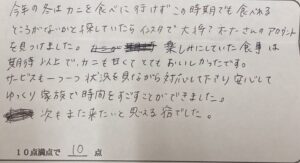 今年の冬はカニを食べに行けずこの時期でも食べれる
ところがないかと探していたらインスタで大将?オーナーさんのアカウント
を見つけました。楽しみにしていた食事は
期待以上で、カニも甘くてとてもおいしかったです。
サービスも一つ一つ状況を見ながら対応して下さり安心して
ゆっくり家族で時間をすごすことができました。
次もまた来たいと思える宿でした。
10点満点で 10 点